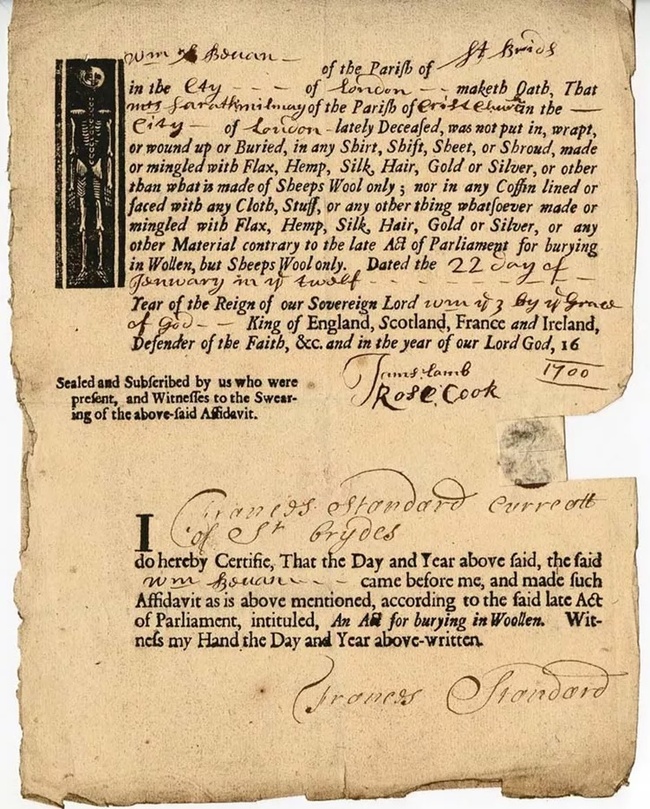 Wm Bevan of the Parish of St Brids
in the City of London maketh Oath, That
mrs Sarah milmay of the Parish of Crist Church in the
City of London lately Deceased, was not put in, wrapt,
or wound up or Buried, in any Shirt, Shift, Sheet, or Shroud, made
or mingled with Flax, Hemp, Silk, Hair, Gold or Silver, or other
than what is made of Sheeps Wool only ; nor in any Coffin lined or
faced with any Cloth, Stuff, or any other thing whatsoever made or
mingled with Flax, Hemp, Silk, Hair, Gold or Silver, or any
other Material contrary to the late Act of Parliament for burying
in Wollen, but Sheeps Wool only. Dated the 22 day of
Jenwary in ye twelf
Year of the Reign of our Sovereign Lord wm ye 3 by ye Grace
of God King of England, Scotland, France and Ireland,
Defender of the Faith, &c. and in the year of our Lord God, 16
1700
Sealed and Subscribed by us who were
present, and Witnesses to the Swear-
ing of the above-said Affidavit.
Jams Lamb
Rose Cook
I Frances Standard Curreatt
of St Brydes
do hereby Certifie, That the Day and Year above said, the said
Wm Bevan came before me, and made such
Affidavit as is above mentioned, according to the said late Act
of Parliament, intituled, An Act for burying in Woollen. Wit-
ness my Hand the Day and Year above-written.
Frances Standard